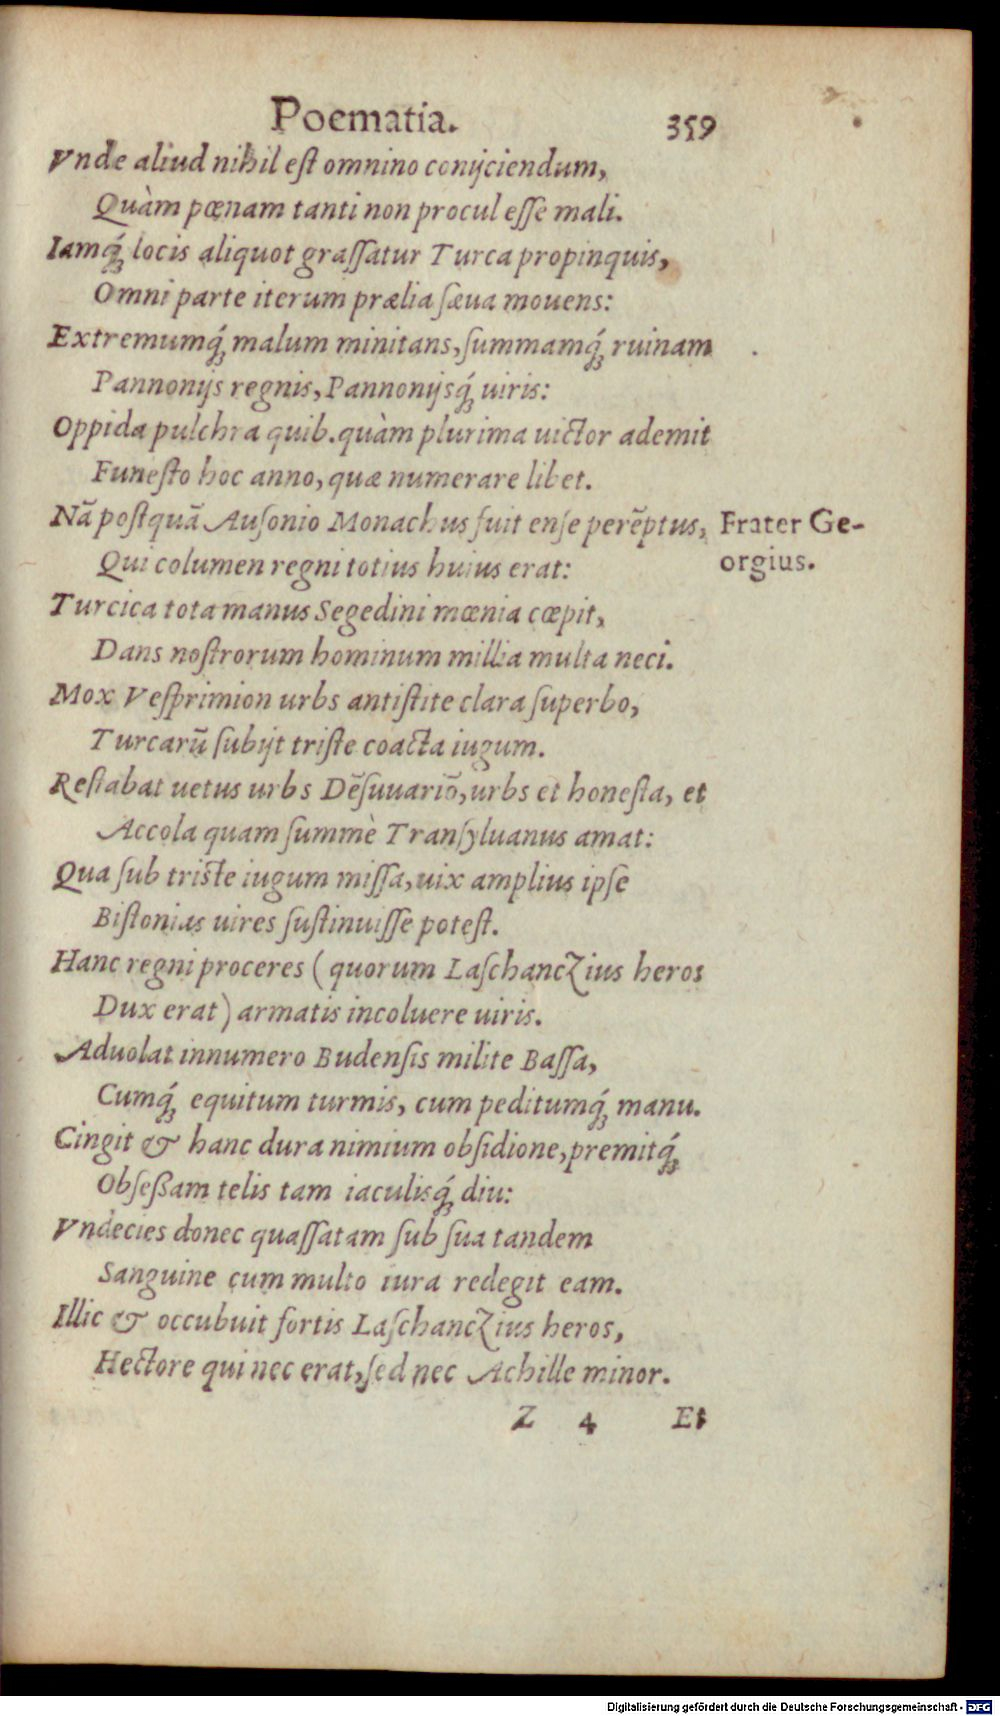 Poematia. 359
Vnde aliud nihil eſt omnino conijciendum,
Quàm pœnam tanti non procul eſſe mali.
Iamq́; locis aliquot graſſatur Turca propinquis,
Omni parte iterum prælia ſæua mouens:
Extremumq́; malum minitans, ſummamq́; ruinam
Pannonijs regnis, Pannonijsq́; uiris:
Oppida pulchra quib. quàm plurima uictor ademit
Funeſto hoc anno, quæ numerare libet.
Nã poſtquã Auſonio Monachus fuit enſe perẽptus, Frater Ge-
Qui columen regni totius huius erat: orgius.
Turcica tota manus Segedini mœnia cœpit,
Dans noſtrorum hominum millia multa neci.
Mox Veſprimion urbs antiſtite clara ſuperbo,
Turcarũ ſubijt triſte coacta iugum.
Reſtabat uetus urbs Dẽſuuariõ, urbs et honeſta, et
Accola quam ſummè Tranſyluanus amat:
Qua ſub triſte iugum miſſa, uix amplius ipſe
Biſtonias uires ſuſtinuiſſe poteſt.
Hanc regni proceres (quorum Laſchanczius heros
Dux erat) armatis incoluere uiris.
Aduolat innumero Budenſis milite Baſſa,
Cumq́; equitum turmis, cum peditumq́; manu.
Cingit & hanc dura nimium obſidione, premitq́;
Obſeßam telis tam iaculisq́; diu:
Vndecies donec quaſſatam ſub ſua tandem
Sanguine cum multo iura redegit eam.
Illic & occubuit fortis Laſchanczius heros,
Hectore qui nec erat, ſed nec Achille minor.
Z 4 Et
Digitalisierung gefördert durch die Deutsche Forschungsgemeinschaft - DFG